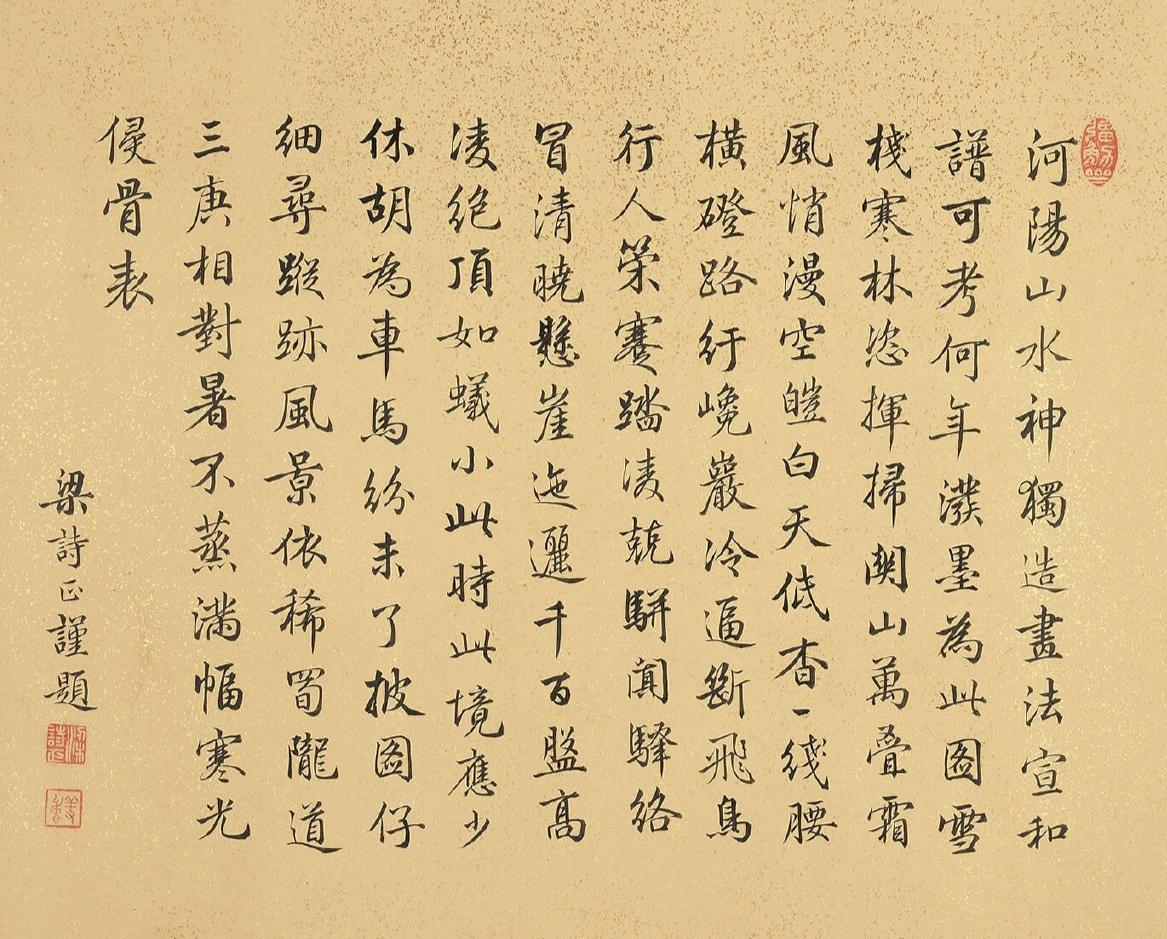 河陽山水神獨造畫法宣和
譜可考何年潑墨為此圖雪
棧寒林恣揮掃關山萬疊霜
風悄漫空皚白天低杳一綫腰
橫磴路紆巉巖冷逼斷飛鳥
行人策蹇踏凌兢駢闐驛絡
冒清曉懸崖迤邐千百盤高
凌絶頂如蟻小此時此境應少
休胡為車馬紛未了披圖仔
細尋蹤跡風景依稀蜀隴道
三庚相對暑不蒸滿幅寒光
侵骨表
梁詩正謹題